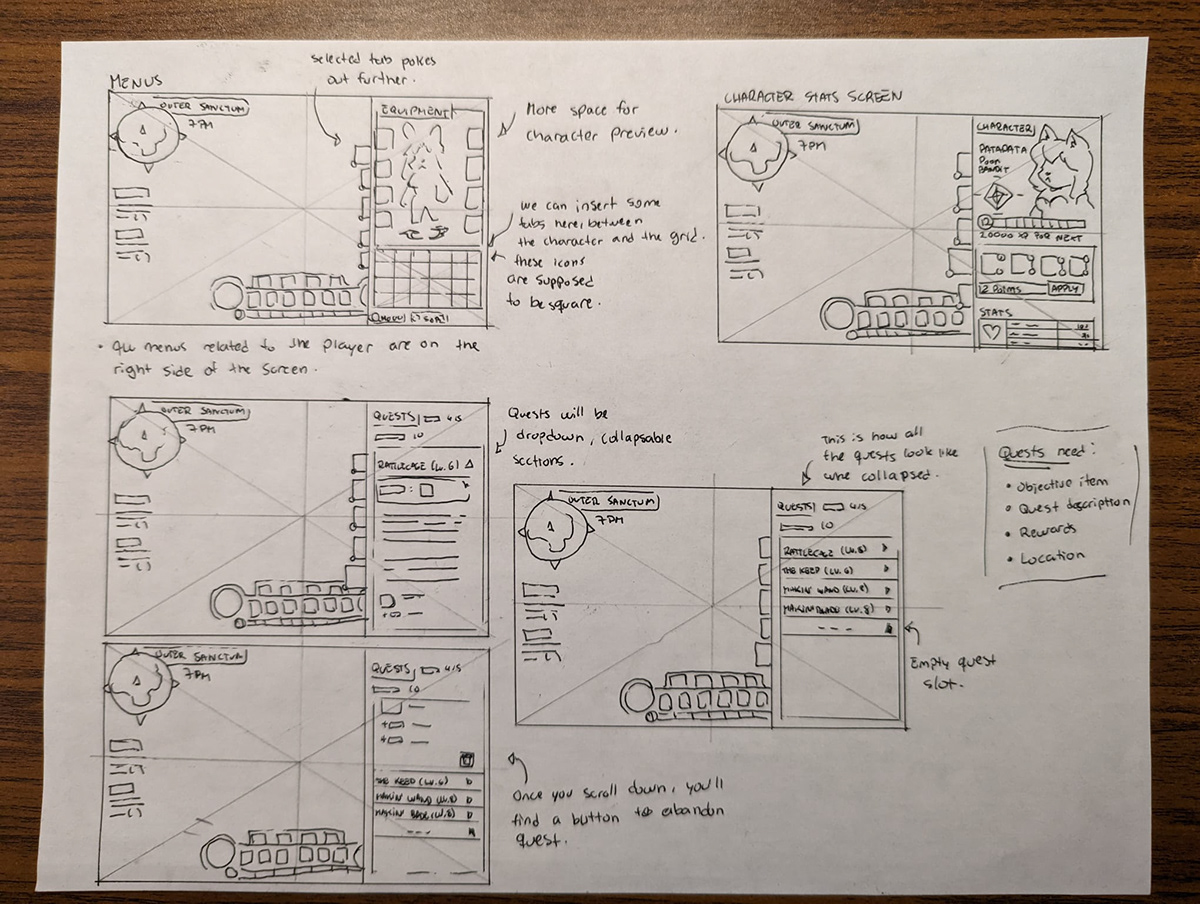 MENUS
selected tab pokes
out further.
OUTER SANCTUM
7PM
EQUIPMENT
MENU
SORT
More space for
character preview.
we can insert some
tabs here, between
the character and the grid.
these icons
are supposed
to be square.
• All menus related to the player are on the
right side of the screen.
CHARACTER STATS SCREEN
OUTER SANCTUM
7PM
CHARACTER
PATAPATA
POON
BANDIT
12
20000 XP FOR NEXT
12 POINTS
APPLY
STATS
OUTER SANCTUM
7PM
QUESTS
4/5
10
RATTLECAGE (LV. 6)
Quests will be
dropdown, collapsable
sections.
OUTER SANCTUM
7PM
QUESTS
4/5
10
RATTLECAGE (LV. 6)
THE KEEP (LV. 6)
MAKIN' WAND (LV. 8)
MAKIN' BLADE (LV. 8)
---
This is how all
the quests look like
whne collapsed.
Empty quest
slot.
Quests need:
• Objective item
• Quest description
• Rewards
• Location
OUTER SANCTUM
7PM
QUESTS
4/5
10
THE KEEP (LV. 6)
MAKIN' WAND (LV. 8)
MAKIN' (LV. 8)
---
Once you scroll down, you'll
find a button to abandon
quest.